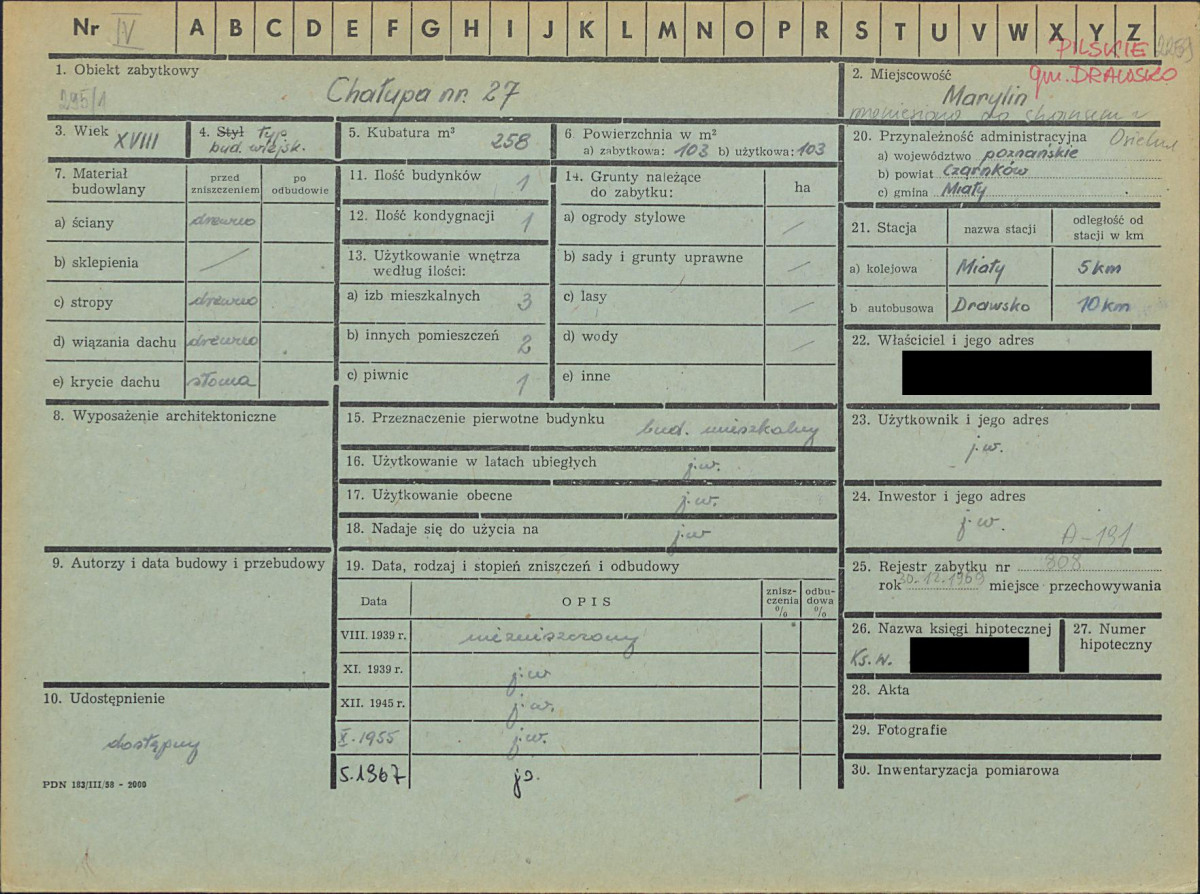 Nr IV A B C D E F G H I J K L M N O P R S T U V W X Y Z
PILSKIE 2259
gm. DRAWSKO
1. Obiekt zabytkowy
295/1
Chałupa nr. 27
2. Miejscowość
Marylin
3. Wiek XVIII
4. Styl typ.
bud. wiejsk.
5. Kubatura m³ 258
6. Powierzchnia w m²
a) zabytkowa: 103 b) użytkowa: 103
7. Materiał budowlany
przed zniszczeniem
po odbudowie
a) ściany drewno
b) sklepienia /
c) stropy drewno
d) wiązania dachu drewno
e) krycie dachu słoma
8. Wyposażenie architektoniczne
9. Autorzy i data budowy i przebudowy
10. Udostępnienie
dostępny
PDN 183/III/58 - 2000
11. Ilość budynków 1
12. Ilość kondygnacji 1
13. Użytkowanie wnętrza
według ilości:
a) izb mieszkalnych 3
b) innych pomieszczeń 2
c) piwnic 1
14. Grunty należące
do zabytku: ha
a) ogrody stylowe /
b) sady i grunty uprawne /
c) lasy /
d) wody /
e) inne
15. Przeznaczenie pierwotne budynku bud. mieszkalny
16. Użytkowanie w latach ubiegłych j.w.
17. Użytkowanie obecne j.w.
18. Nadaje się do użycia na j.w
19. Data, rodzaj i stopień zniszczeń i odbudowy
Data OPIS znisz-czenia % odbu-dowa %
VIII. 1939 r. niezniszczony
XI. 1939 r. j.w
XII. 1945 r. j.w.
X. 1955 j.w.
5.1967 j.
20. Przynależność administracyjna
a) województwo poznańskie
b) powiat Czarnków
c) gmina Miały
21. Stacja nazwa stacji odległość od
stacji w km
a) kolejowa Miały 5 km
b autobusowa Drawsko 10 km
22. Właściciel i jego adres
23. Użytkownik i jego adres
j.w.
24. Inwestor i jego adres
j.w.
A-191
25. Rejestr zabytku nr 808
rok 30.12.1969 miejsce przechowywania
26. Nazwa księgi hipotecznej
Ks. w.
27. Numer
hipoteczny
28. Akta
29. Fotografie
30. Inwentaryzacja pomiarowa